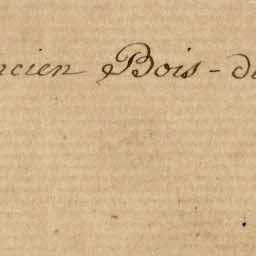 ncien Bois-d